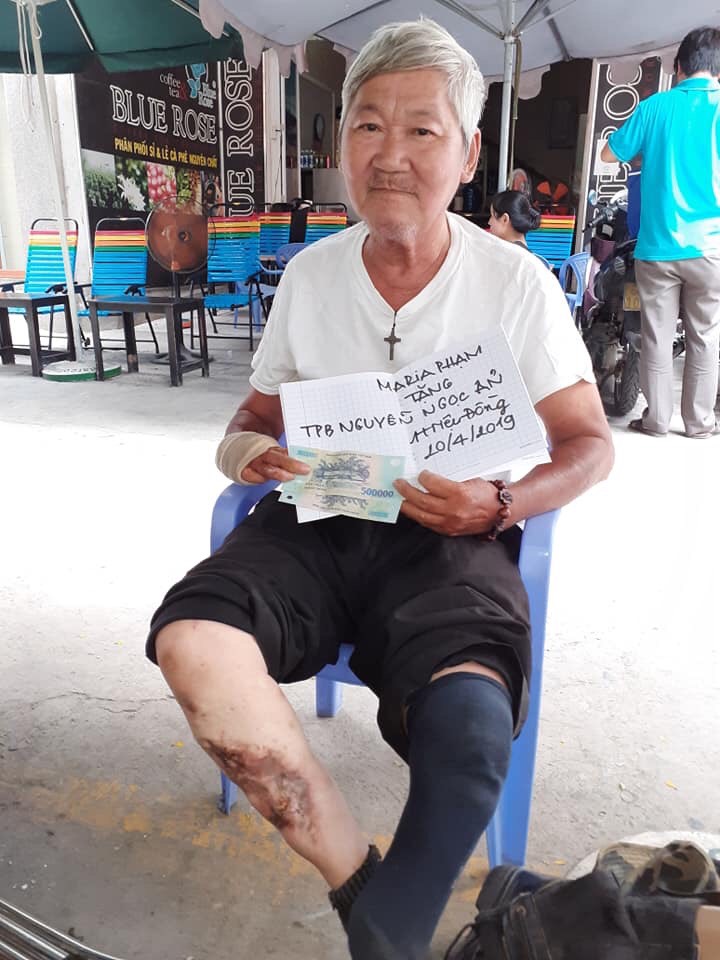 coffee
tea
Blue
Rose
BLUE ROSE
PHÂN PHỐI SỈ & LẺ CÀ PHÊ NGUYÊN CHẤT
BLUE ROSE
MARIA PHẠM
TẶNG
TPB NGUYỄN NGỌC ẨN
20/4/2019
500000